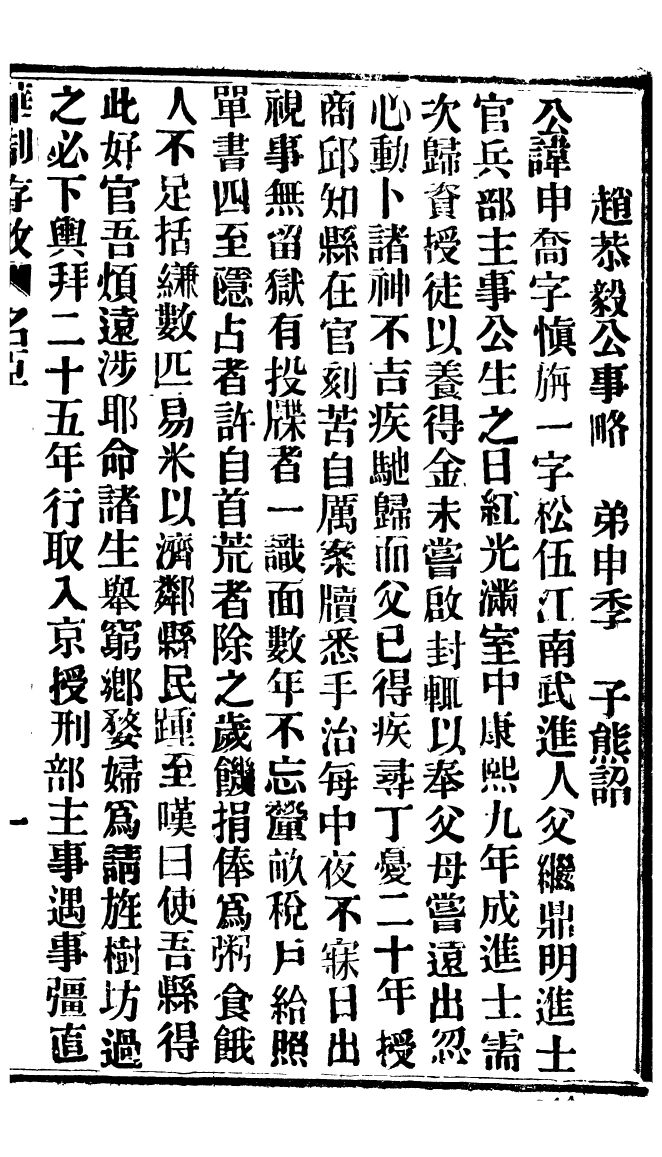 趙恭毅公事略　弟申季　子熊詔
公諱申喬字慎旃一字松伍江南武進人父繼鼎明進士
官兵部主事公生之日紅光滿室中康熙九年成進士需
次歸資授徒以養得金未嘗啟封輒以奉父母嘗遠出忽
心動卜諸神不吉疾馳歸而父已得疾尋丁憂二十年授
商邱知縣在官刻苦自厲案牘悉手治每中夜不寐日出
視事無留獄有投牒者一識面數年不忘釐畝稅戶給照
單書四至隱占者許自首荒者除之歲饑捐俸爲粥食餓
人不足括縑數匹易米以濟鄰縣民踵至嘆曰使吾縣得
此好官吾煩遠涉耶命諸生舉窮鄉嫠婦爲請旌樹坊過
之必下輿拜二十五年行取入京授刑部主事遇事彊直
名臣
一